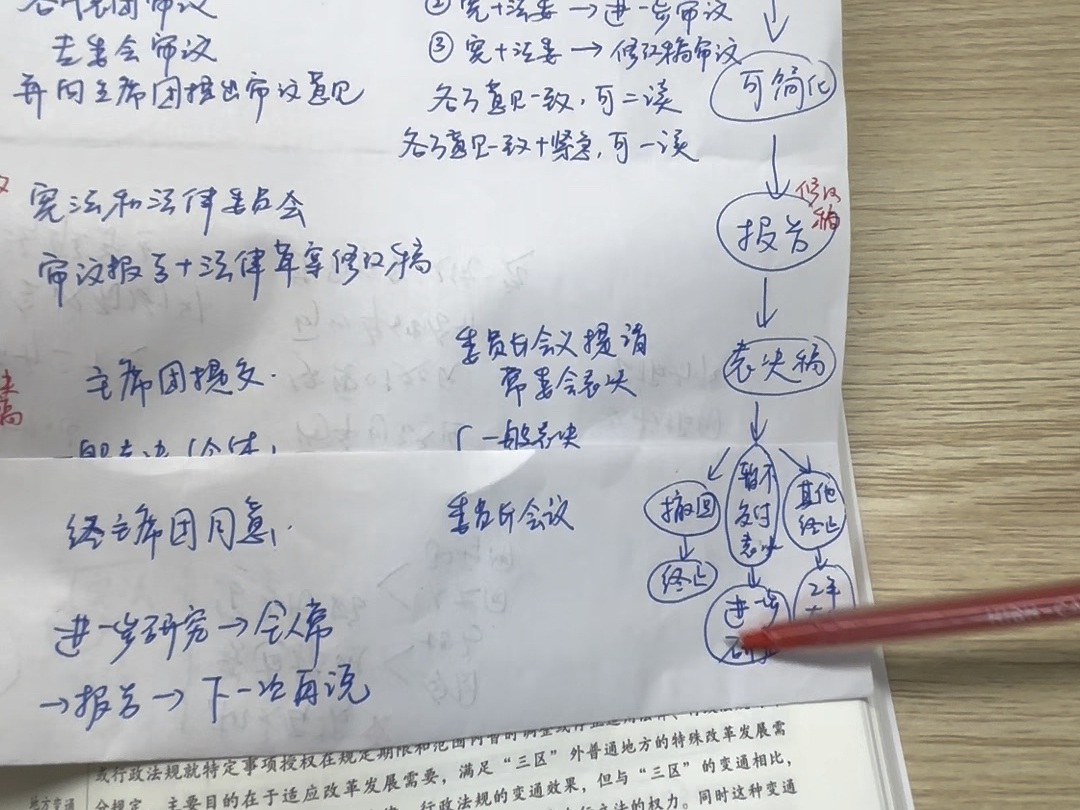 各代表团审议
专委会审议
并向主席团提出审议意见
② 宪+法委 → 进一步审议
③ 宪+法委 → 修改稿审议
各方意见一致，可二读
各方意见一致+紧急，可一读
可简化
宪法和法律委员会
审议报告+法律草案修改稿
报告
修改稿
主席团提交.
委员长会议提请
常委会表决
表决稿
一般表决
经主席团同意.
委员长会议
撤回
终止
暂不
交付
表决
进一步
其他
终止
2年
进一步研究→全人常
→报告→下一次再说
或行政法规就特定事项授权在规定期限和范围内暂时调整或
外普通地方的特殊改革发展需
主要目的在于适应改革发展需要，满足“三区”
行政法规的变通效果，但与“三区”的变通相比，
的权力。同时这种变通
地方变通